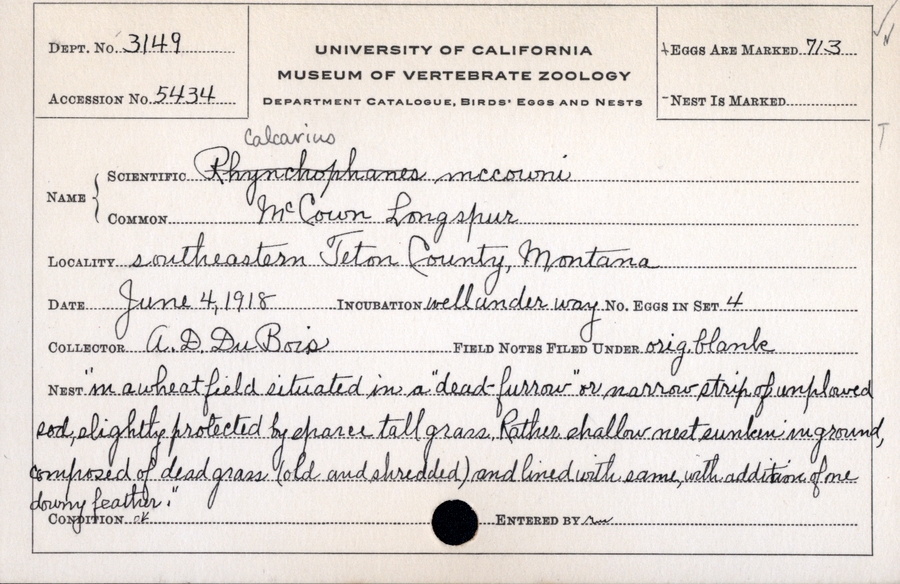 Dept. No. 3149
Accession No. 5434
UNIVERSITY OF CALIFORNIA
MUSEUM OF VERTEBRATE ZOOLOGY
Department Catalogue, Birds' Eggs and Nests
Eggs Are Marked 71/3
Nest Is Marked
Calcarius
Name
Scientific Rhynchophanes mccowni
Common McCown Longspur
Locality southeastern Teton County, Montana
Date June 4, 1918 Incubation well under way No. Eggs in Set 4
Collector A. D. DuBois Field Notes Filed Under orig. blank
Nest "in a wheat field situated in a "dead-furrow" or narrow strip of unplowed
sod, slightly protected by sparce tall grass. Rather shallow nest sunken in ground,
composed of dead grass (old and shredded) and lined with same, with addition of one
downy feather."
Condition ok Entered by